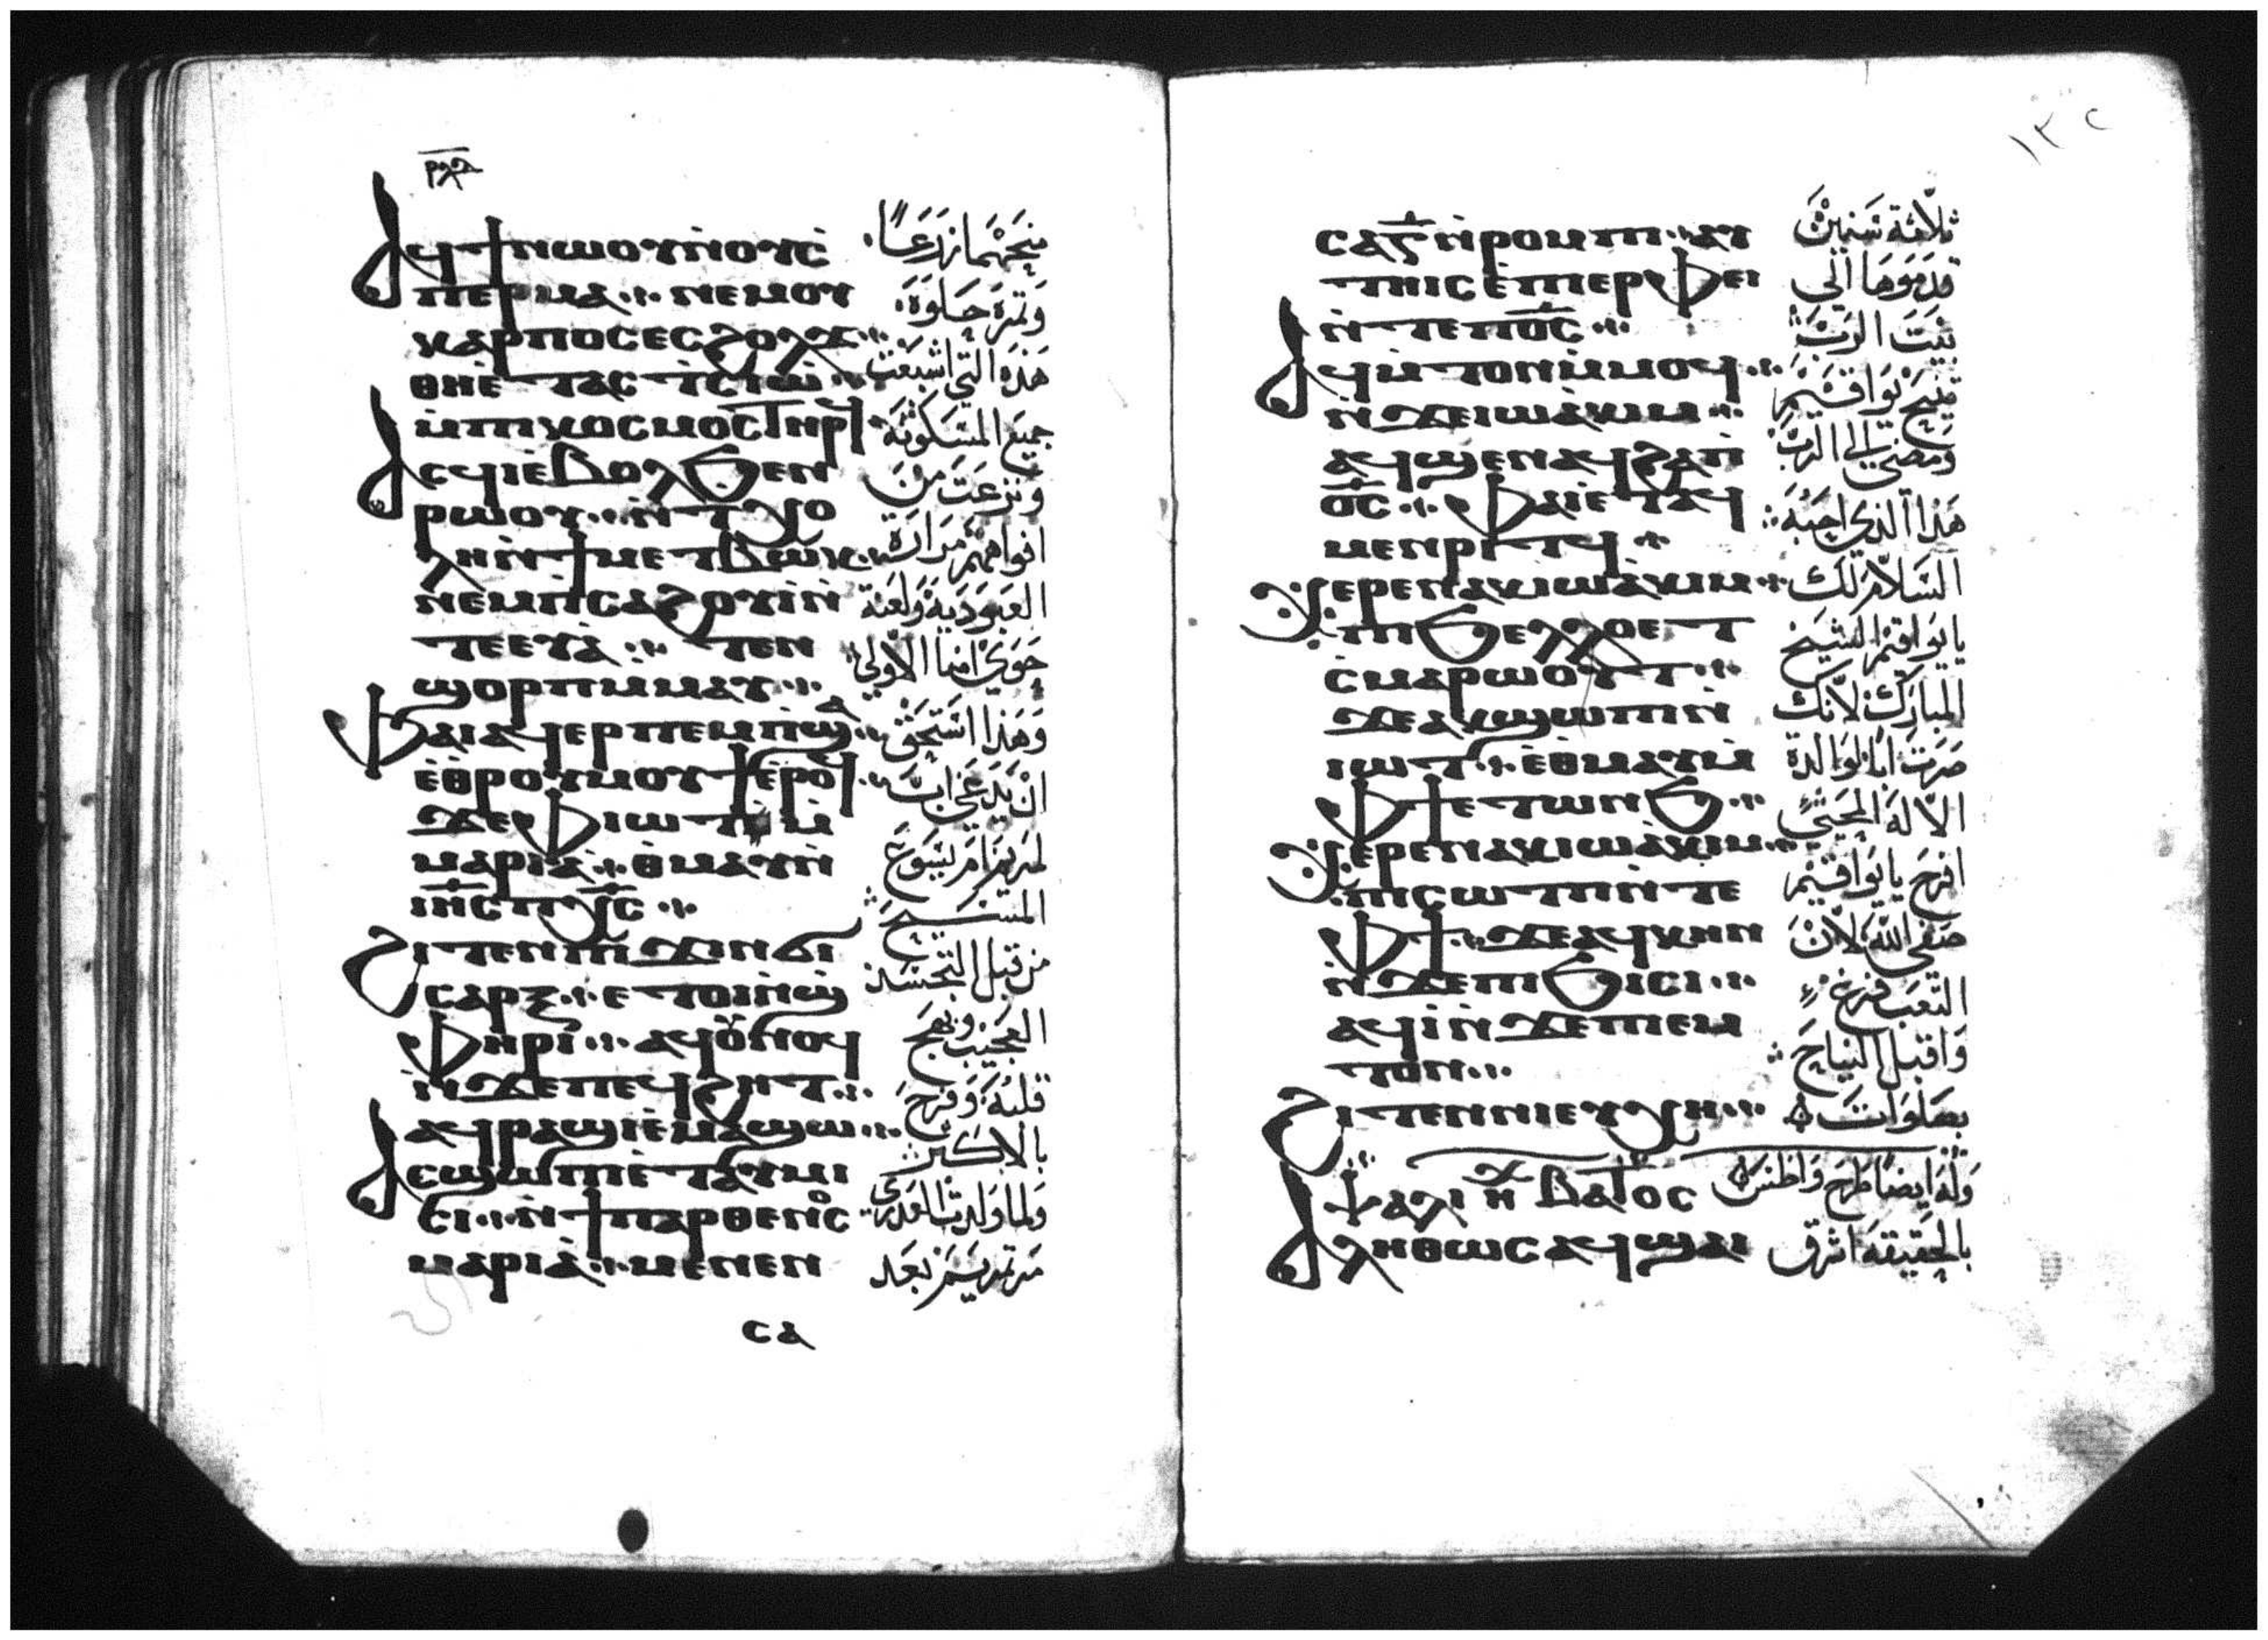 ⲣⲗⲃ
ⲁϥϯⲛⲱⲟⲩⲛ̀ⲟⲩⲥ̀
ⲡⲉⲣⲙⲁ ⲛⲉⲙⲟⲩ
ⲕⲁⲣⲡⲟⲥⲉⲥϩⲟⲗϫ
ⲑⲏⲉ̀ⲧⲁⲥⲧ̀ⲥⲓⲱ̀
ⲙ̀ⲡⲓⲕⲟⲥⲙⲟⲥⲧⲏⲣϥ
ⲁⲥϥⲓⲉ̀ⲃⲟⲗϧⲉⲛ
ⲣⲱⲟⲩ ⲛ̀ⲧⲭⲟ
ⲗⲏⲛ̀ϯⲙⲉⲧⲃⲱⲕ
ⲛⲉⲙⲡ̀ⲥⲁϩⲟⲩⲓ̀ⲛ̀
ⲧⲉⲉⲩⲁ̀ ⲧⲉⲛ
ϣⲟⲣⲡⲓⲙⲙⲁⲩ
ⲫⲁⲓⲁϥⲉⲣⲡⲉⲙⲡ̀ϣⲁ
ⲉ̀ⲑⲣⲟⲩⲙⲟⲩϯⲉ̀ⲣⲟϥ
ϫⲉⲫⲓⲱⲧⲙ̀
ⲙⲁⲣⲓⲁ̀ ⲑⲙⲁⲩⲛ̀
ⲓⲏ̅ⲥ̅ ⲡⲭ̅ⲥ̅
ϩⲓⲧⲉⲛⲡⲓϫⲓⲛϭⲓ
ⲥⲁⲣⲝ ⲉⲧⲟⲓⲛ̀ϣ̀
ⲫⲏⲣⲓ ⲁϥⲟⲩⲛⲟϥ
ⲛ̀ϫⲉⲡⲉϥϩⲏⲧ
ⲁϥⲣⲁϣⲓⲉ̀ⲙⲁϣⲱ
ⲁⲥϣⲱⲡⲓⲉ̀ⲧⲁⲩⲙⲓ
ⲥⲓ ⲛ̀ϯⲡⲁⲣⲑⲉⲛⲟⲥ
ⲙⲁⲣⲓⲁ̀ ⲙⲉⲛⲉⲛ
ⲥⲁ
منحهما زرعًا
وثمرة حلوة
هذه التي اشبعت
جميع المسكونة
ونزعت من
افواههم مرارة
العبودية ولعنة
حوى امنا الاولي
وهذا استحق
ان يدعي اب
لمريم ام يسوع
المسيح
من قبل التجسد
العجيب وبهج
قلبه وفرح
بالاكثر
ولما ولدت العذري
مرتمريم بعد
١٣٢
ⲥⲁⲅ̅ⲛ̀ⲣⲟⲙⲡⲓ ⲁⲩ
ⲧⲏⲓⲥⲉ̀ⲡⲓⲉⲣⲫⲉⲓ
ⲛ̀ⲧⲉⲡⲟ̅ⲥ̅
ⲁϥⲙ̀ⲧⲟⲛⲙ̀ⲙⲟϥ
ⲛ̀ϫⲉⲓⲱⲁ̀ⲕⲓⲙ
ⲁϥϣⲉⲛⲁϥϩⲁⲡ̀
ⲟ̅ⲥ̅ ⲫⲁⲓⲉ̀ⲧⲁϥ
ⲙⲉⲛⲣⲓⲧϥ
ⲭⲉⲣⲉⲛⲁⲕⲓⲱⲁ̀ⲕⲓⲙ
ⲡⲓϧⲉⲗⲗⲟⲉⲧ
ⲥ̀ⲙⲁⲣⲱⲟⲩⲧ
ϫⲉⲁⲕϣⲱⲡⲓⲛ̀
ⲓⲱⲧ ⲉ̀ⲑⲙⲁⲩⲙ̀
ⲫϯⲉⲧⲱⲛϧ
ⲭⲉⲣⲉⲛⲁⲕⲓⲱⲁ̀ⲕⲓⲙ
ⲡⲓⲥⲱⲧⲡⲛ̀ⲧⲉ
ⲫϯ ϫⲉⲁϥⲕⲏⲛ
ⲛ̀ϫⲉⲡⲓϧⲓⲥⲓ
ⲁϥⲓ̀ⲛ̀ϫⲉⲡⲓⲉⲙ
ⲧⲟⲛ
ϩⲓⲧⲉⲛⲛⲓⲉⲩⲭⲏ
ⲯⲁⲗⲓ ⲏⲭ ⲃⲁⲧⲟⲥ
ⲁⲗⲏⲑⲱⲥⲁϥϣⲁⲓ
ثلاثة سنين
قدموها الي
بيت الرب
تنيح يواقيم
ومضي الي الرب
هذا الذي احبه
السلام لك
يا يواقيم الشيخ
المبارك لانك
صرت ابا لوالدة
الاله الحي
افرح يا يواقيم
صفي الله لان
التعب فرغ
واقبل النياح
بصلوات
وله ايضا طرح واطس
بالحقيقة اشرق